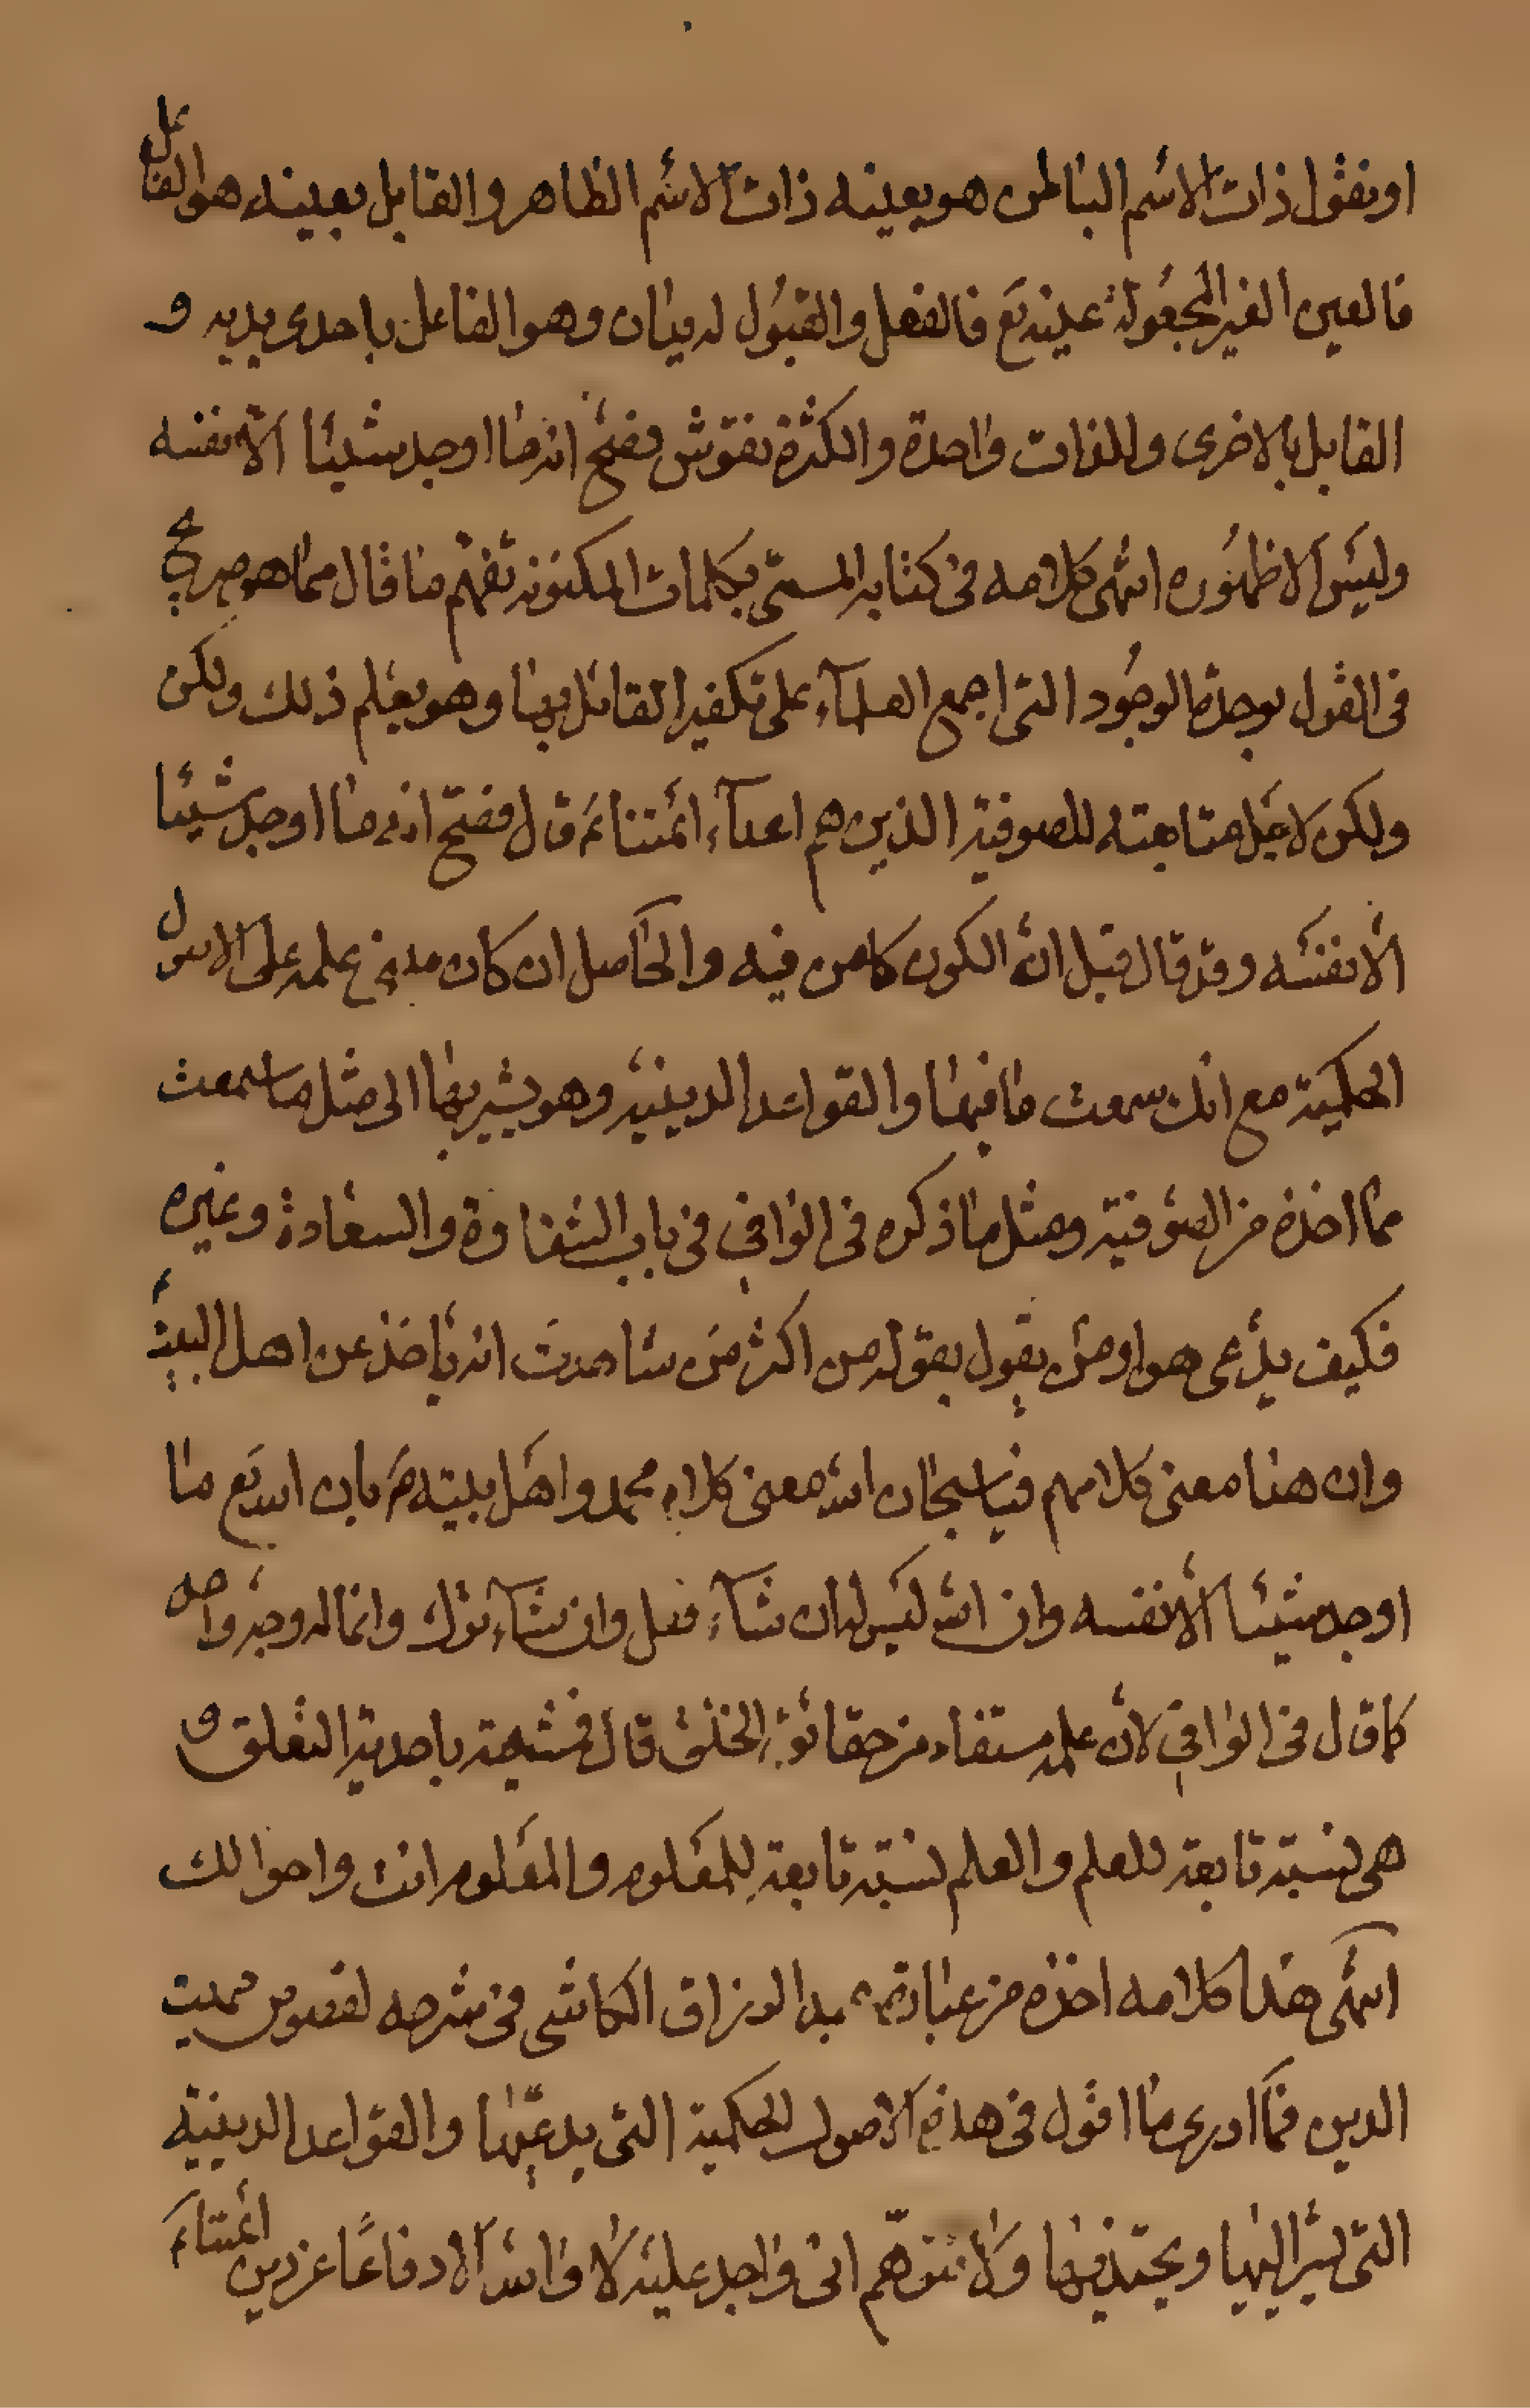 او نقول ذات الاسم الباطن هو بعينه ذات الاسم الظاهر والقابل بعينه هو الفاعل
فالعين الغير المجعولة عينه تع فالفعل والقبول له يدان وهو الفاعل باحدى يديه و
القابل بالاخرى والذات واحدة والكثرة نقوش فصح انه ما اوجد شيئا الا نفسه
وليس الا ظهوره انتهى كلامه فى كتابه المسمى بكلمات المكنونه تفهم ما قال مما هو صريح
فى القول بوحدة الوجود التى اجمع العلمآء على تكفير القائل بها وهو يعلم ذلك ولكن
ولكن لاجل متابعته للصوفية الذين هم اعدآء ائمتنا ع قال فصح انه ما اوجد شيئا
الا نفسه وقد قال قبل ان الكون كامن فيه والحاصل ان كان مبنى علمه على الاصول
الحكمية مع انك سمعت ما فيها والقواعد الدينية وهو يشير بها الى مثل ما سمعت
مما اخذه من الصوفية ومثل ما ذكره فى الوافى فى باب الشقاوة والسعادة وغيره
فكيف يدعى هو او من يقول بقوله من اكثر من شاهدت انه ياخذ عن اهل البيت ع
وان هذا معنى كلامهم فيا سبحان الله معنى كلام محمد واهل بيته ص بان الله تع ما
اوجد شيئا الا نفسه وان الله ليس له ان شآء فعل وان شآء ترك وانما له وجه واحد
كما قال فى الوافى لان علمه مستفاد من حقائق الخلق قال فمشيته باحدية التعلق و
هى نسبة تابعة للعلم والعلم نسبة تابعة للمعلوم والمعلوم انت واحوالك
انتهى هذا كلامه اخذه من عبارة عبد الرزاق الكاشى فى شرحه لفصوص مميت
الدين فما ادرى ما اقول فى هذه الاصول الحكمية التى يدعيها والقواعد الدينية
التى يشير اليها ويحتذيها ولا تتوهم انى واجد عليه لا والله الا دفاعا عن دين ائمتنا ع